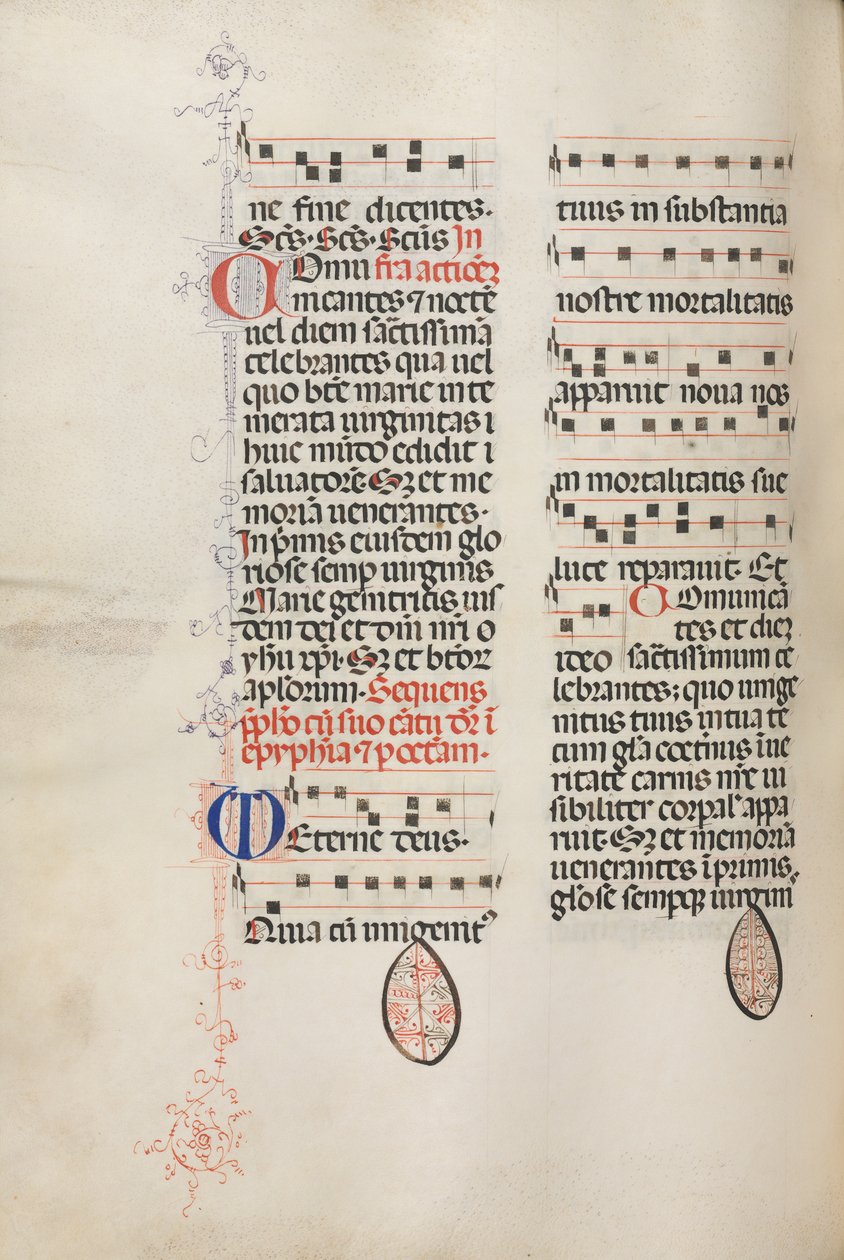 ne fine dicentes.
Sc̄s. Sc̄s. Sctūs In
Comu fra actiōeȝ
nicantes ⁊ noctē
uel diem sāctissimā
celebrantes qua uel
quo btē marie inte
merata uirginitas i
huic mūdo edidit i
saluatorē Sȝ et me
moriā uenerantes.
In pͥmis eiusdem glo
riose semp uirginis
Marie genitricis eius
dem dei et dn̄i nr̄i
yhū xp̄i. Sȝ et btōꝝ
aplōrum. Sequens
cū suo cātu dr̄ ī
epyphīa ⁊ p octām.
VEterne deus.
Quia cū unigenitꝰ
tuus in substantia
nostre mortalitatis
apparuit noua nos
in mortalitatis sue
luce reparauit. Et
ideo
Comunicā
tes et dieȝ
sāctissimum ce
lebrantes; quo unige
nitus tuus in tua te
cum glā coetnus ī ue
ritate carnis nr̄e ui
sibiliter corpalr appa
ruit. Sȝ et memoriā
uenerantes ī primis.
glōse sempqȝ uirgini